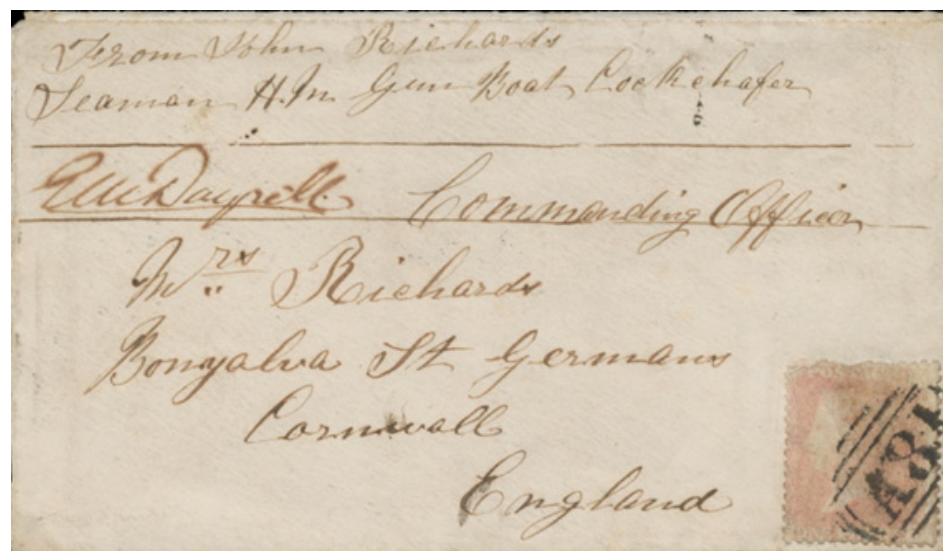 From John Richards
Seaman H.M. Gun Boat Cockchafer
Commanding Officer
Mrs Richards
Bonyalva St Germans
Cornwall
England